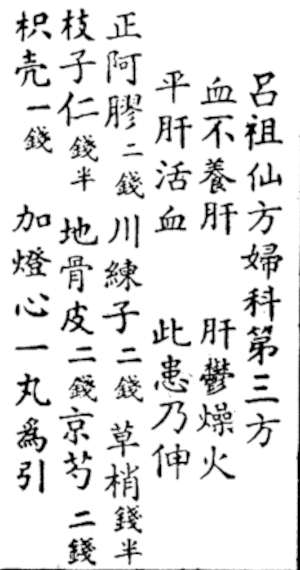 呂祖仙方婦科第三方
血不養肝 肝鬱燥火
平肝活血 此患乃伸
正阿膠二錢 川練子二錢 草梢錢半
枝子仁錢半 地骨皮二錢 京芍二錢
枳壳一錢 加燈心一丸爲引